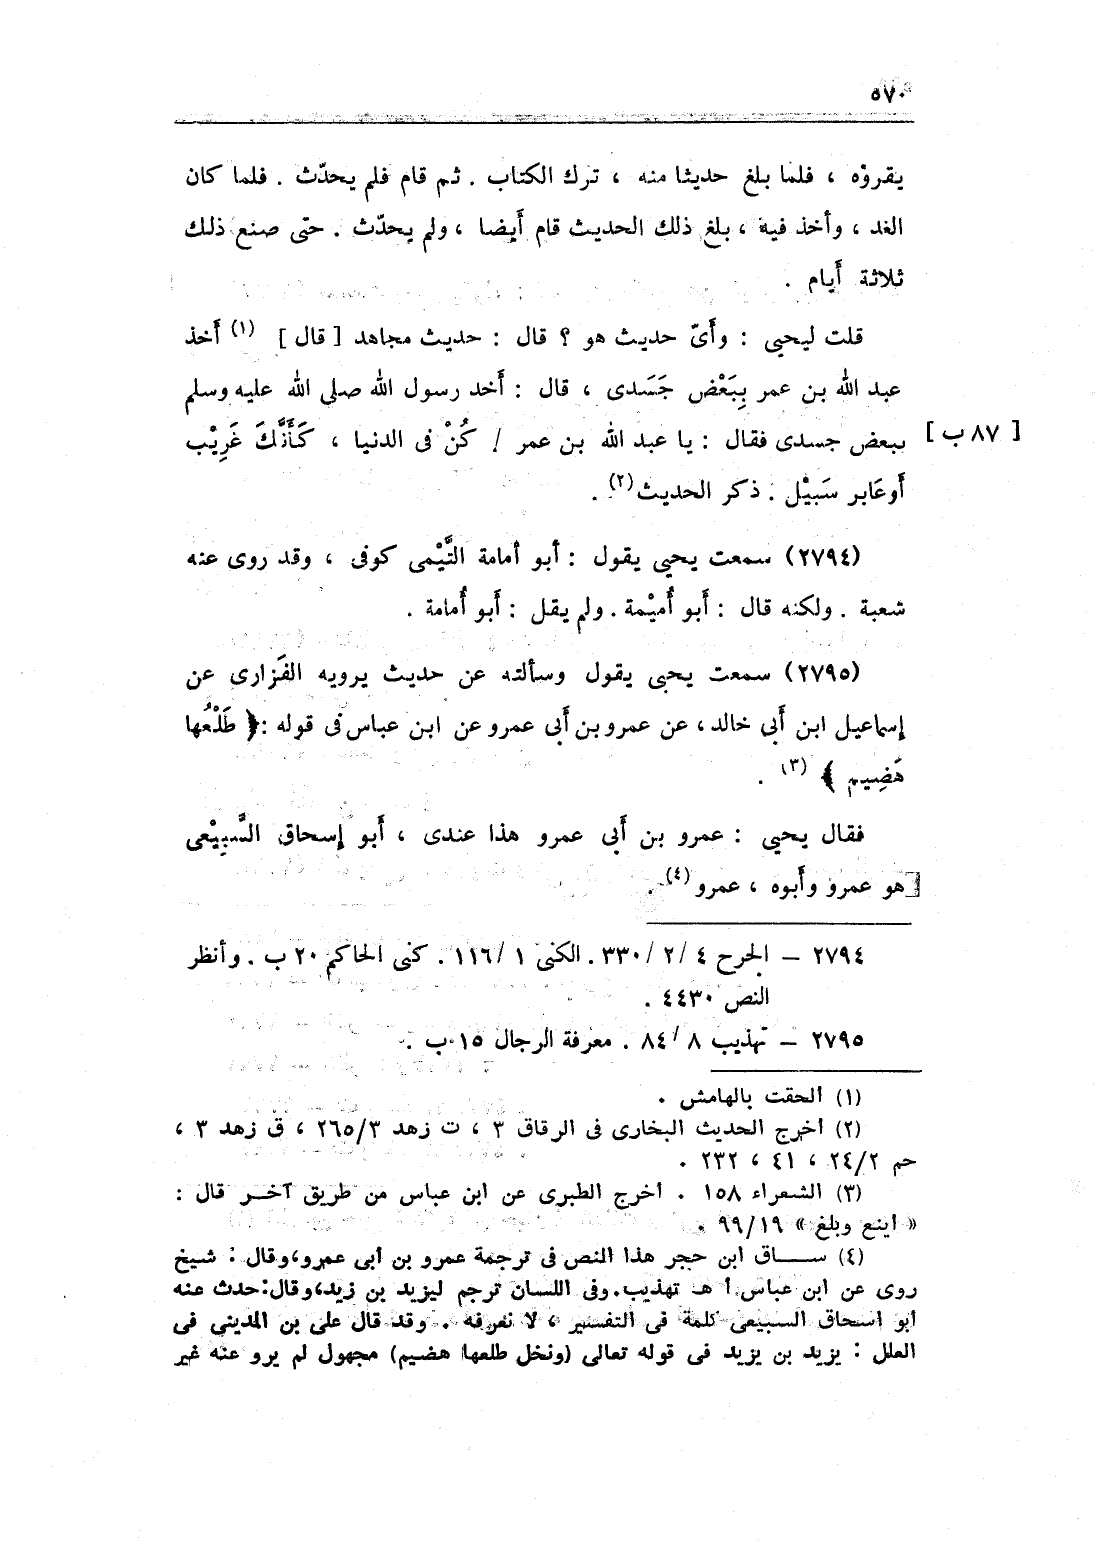 ٥٧٠
يقرؤه ، فلما بلغ حديثا منه ، ترك الكتاب . ثم قام فلم يحدّث . فلما كان
الغد ، وأخذ فيه ، بلغ ذلك الحديث قام أَيضا ، ولم يحدّث . حتى صنع ذلك
ثلاثة أَيام .
قلت ليحيى : وأَىّ حديث هو ؟ قال : حديث مجاهد [ قال ] (١) أَخذ
عبد الله بن عمر بِبَعْض جَسَدى ، قال : أَخد رسول الله صلى الله عليه وسلم
ببعض جسدى فقال : يا عبد الله بن عمر / كُنْ فى الدنيا ، كَأَنَّكَ غَرِيْب [ ٨٧ ب ]
أَو عَابر سَبِيْل . ذكر الحديث (٢) .
(٢٧٩٤) سمعت يحيى يقول : أَبو أمامة التَّيْمى كوفى ، وقد روى عنه
شعبة . ولكنه قال : أَبو أُميْمة . ولم يقل : أَبو أُمامة .
(٢٧٩٥) سمعت يحيى يقول وسألته عن حديث يرويه الفَزارى عن
إسماعيل ابن أَبي خالد ، عن عمرو بن أَبى عمرو عن ابن عباس فى قوله : ﴿ طَلْعُها
هَضِيم ﴾ (٣) .
فقال يحيى : عمرو بن أَبى عمرو هذا عندى ، أَبو إسحاق السَّبِيْعى
هو عمرو وأَبوه ، عمرو (٤) .
٢٧٩٤ – الجرح ٤ /٢ /٣٣٠ . الكنى ١ /١١٦ . كنى الحاكم ٢٠ ب . وأنظر
النص ٤٤٣٠ .
٢٧٩٥ – تهذيب ٨ /٨٤ . معرفة الرجال ١٥ ب .
(١) ألحقت بالهامش .
(٢) أخرج الحديث البخارى فى الرقاق ٣ ، ت زهد ٢٦٥/٣ ، ق زهد ٣ ،
حم ٢٤/٢ ، ٤١ ، ٢٣٢ .
(٣) الشعراء ١٥٨ . أخرج الطبرى عن ابن عباس من طريق آخر قال :
« اينع وبلغ » ٩٩/١٩ .
(٤) ساق ابن حجر هذا النص فى ترجمة عمرو بن أبى عمرو، وقال : شيخ
روى عن ابن عباس أ هـ تهذيب. وفى اللسان ترجم ليزيد بن زيد، وقال: حدث عنه
أبو اسحاق السبيعى كلمة فى التفسير ، لا نعرفه . وقد قال على بن المدينى فى
العلل : يزيد بن يزيد فى قوله تعالى (ونخل طلعها هضيم) مجهول لم يرو عنه غير